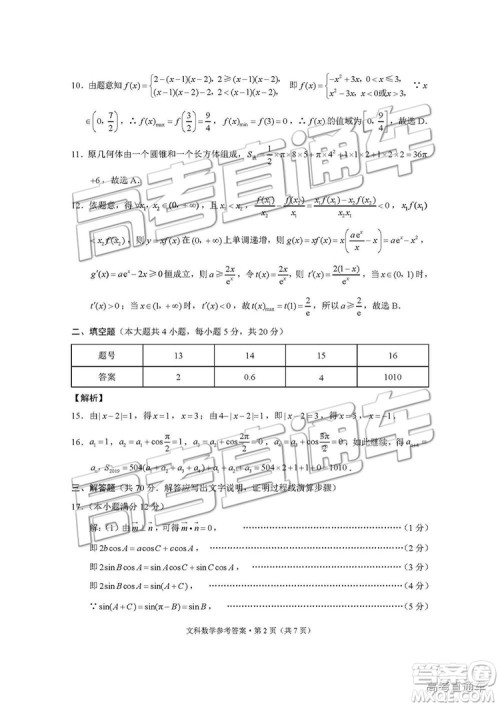 10．由题意知 f(x)={2-(x-1)(x-2), 2≥(x-1)(x-2), (x-1)(x-2), 2<(x-1)(x-2), 即 f(x)={-x²+3x, 0<x≤3, x²-3x, ∵ x
∈(0, 7/2), ∴ f(x)max=f(3/2)=9/4, f(x)min=f(3)=0, ∴ f(x)的值域为[0, 9/4], 故选D．
11．原几何体由一个圆锥和一个长方体组成，S表=1/2×π×8×5+π×4²+1×1×2+1×2×2=36π
+6，故选A．
12．依题意，得∀x₁, x₂∈(0, +∞), 且x₁<x₂, f(x₁)/x₂-f(x₂)/x₁=(x₁f(x₁)-x₂f(x₂))/(x₁x₂)<0, x₁f(x₁)
<x₂f(x₂), 则y=xf(x)在(0, +∞)上单调递增，则g(x)=xf(x)=x(aeˣ/x-x)=aeˣ-x²，
g′(x)=aeˣ-2x≥0恒成立，则a≥2x/eˣ，令t(x)=2x/eˣ，t′(x)=2(1-x)/eˣ，当x∈(0, 1)时，
t′(x)>0；当x∈(1, +∞)时，t′(x)<0，故t(x)max=t(1)=2/e，所以a≥2/e，故选B．
二、填空题（本大题共4小题，每小题5分，共20分）
题号 13 14 15 16
答案 2 0.6 4 1010
【解析】
15．由|x-2|=1，得x=1，x=3；由4-|x-2|=1，得x=5，
16．a₁=1，a₂=a₁+cos π/2=1，
S₂₀₁₉=504(a₁+a₂+a₃+a₄)+a₁+a₂+a₃=504×2+1+1+0=1010．
三、解答题（共70分．解答应写出文字说明，证明过程或演算步骤）
17．（本小题满分12分）
解：(1)由m⊥n，可得m·n=0， （1分）
即2bcosA=acosC+ccosA， （2分）
即2sinBcosA=sinAcosC+sinCcosA， （3分）
即2sinBcosA=sin(A+C)， （4分）
∵sin(A+C)=sin(π-B)=sinB， （5分）
文科数学参考答案·第2页（共7页）
高考直通车
高考直通车